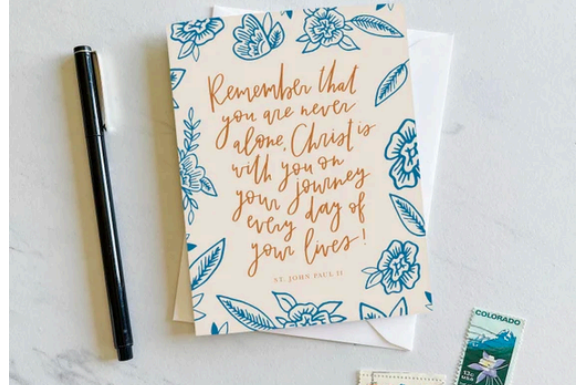 Remember that
you are never
alone, Christ is
with you on
your journey
every day of
your lives!
ST. JOHN PAUL II
COLORADO
13c
USA